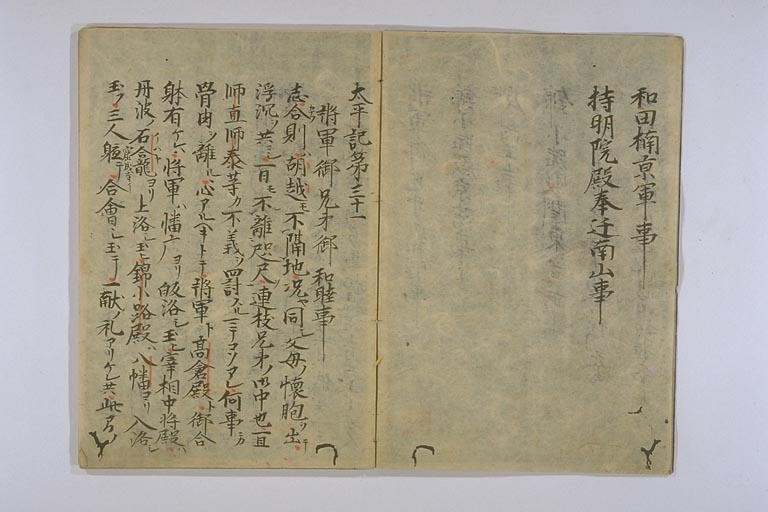 和田楠京軍事
持明院殿奉迁南山事
太平記第三十一
将軍御兄弟御和睦事
志合則ハ胡越モ不隔地况ヤ同シ父母ノ懐胞ヲ出テ
浮沉ヲ共ニシ一日モ不離咫尺ニ連枝兄弟ノ御中也一旦
師直師泰等カ不義ヲ罸スルニテコソアレ何事ニカ
骨肉ヲ離ルヽ心アルヘキトテ将軍ト髙倉殿ト御合
躰有ケレハ将軍ハ播广ヨリ皈洛シ玉ヒ宰相中将殿ハ
丹波ノ石龕ヨリ上洛シ玉ヒ錦小路殿ハ八幡ヨリ入洛シ
玉フ三人軈テ合會シ玉テ一献ノ礼アリケレ共此間ノ